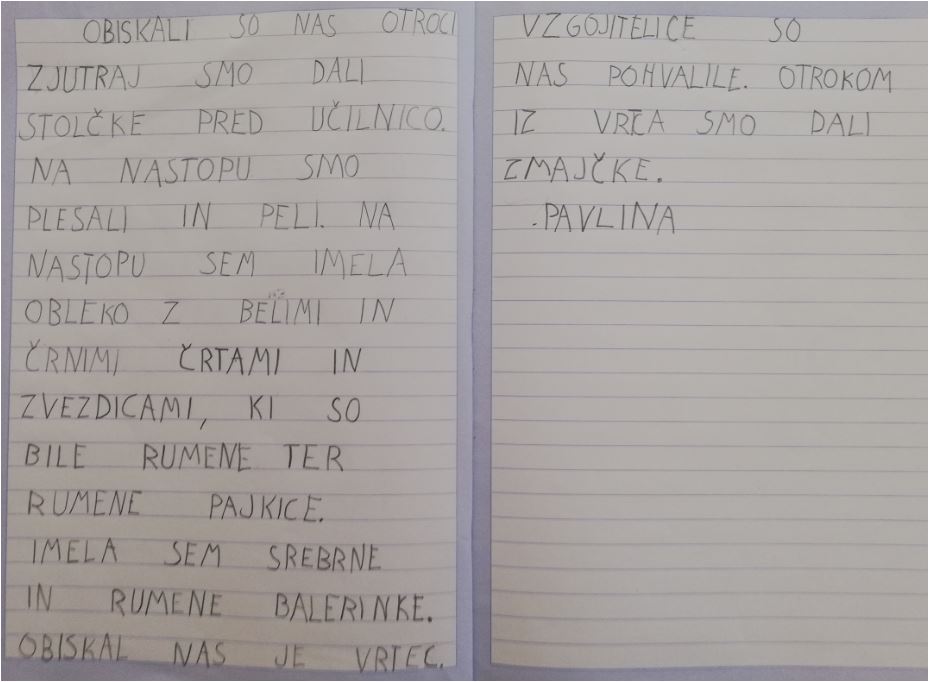 OBISKALI SO NAS OTROCI
ZJUTRAJ SMO DALI
STOLČKE PRED UČILNICO.
NA NASTOPU SMO
PLESALI IN PELI. NA
NASTOPU SEM IMELA
OBLEKO Z BELIMI IN
ČRNIMI ČRTAMI IN
ZVEZDICAMI, KI SO
BILE RUMENE TER
RUMENE PAJKICE.
IMELA SEM SREBRNE
IN RUMENE BALERINKE.
OBISKAL NAS JE VRTEC.
VZGOJITELICE SO
NAS POHVALILE. OTROKOM
IZ VRČA SMO DALI
ZMAJČKE.
PAVLINA